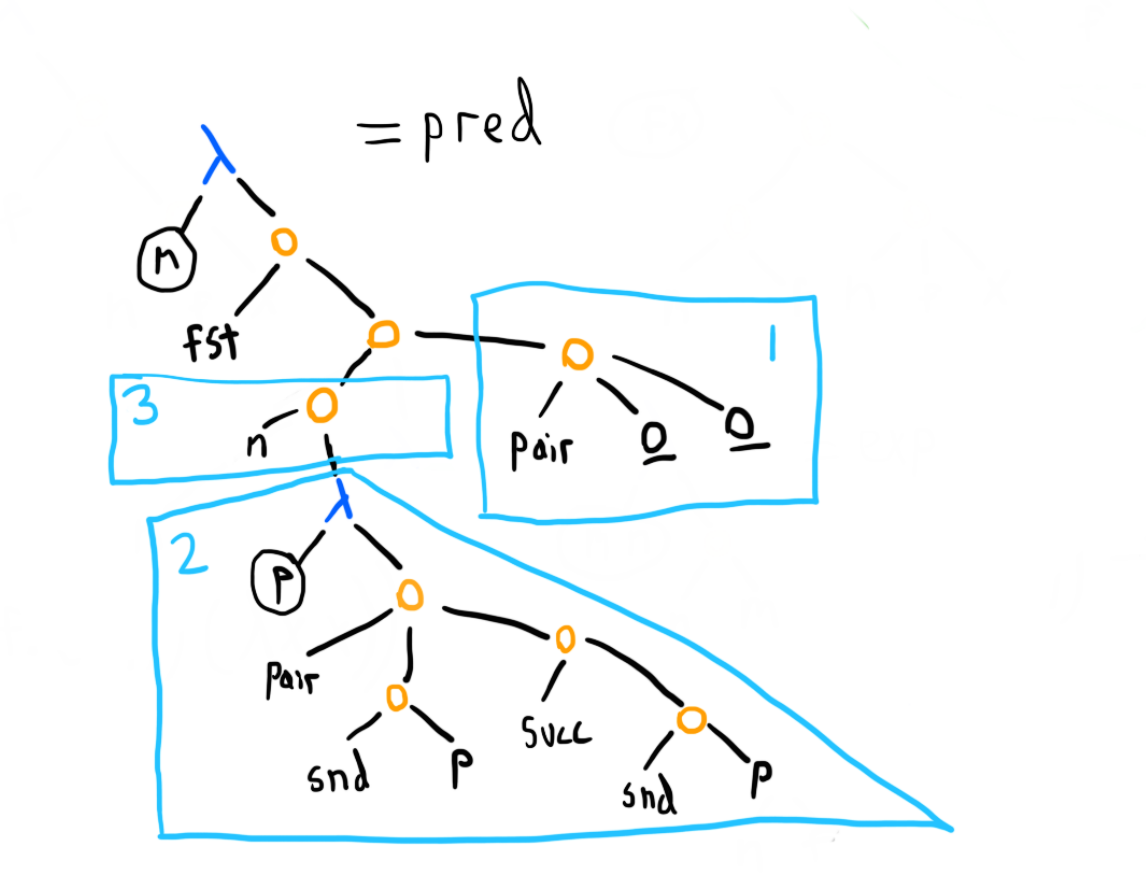 = pred
λ
n
o
fst
o
o
1
pair
0
0
3
o
n
λ
2
p
o
pair
o
o
snd
p
succ
o
snd
p